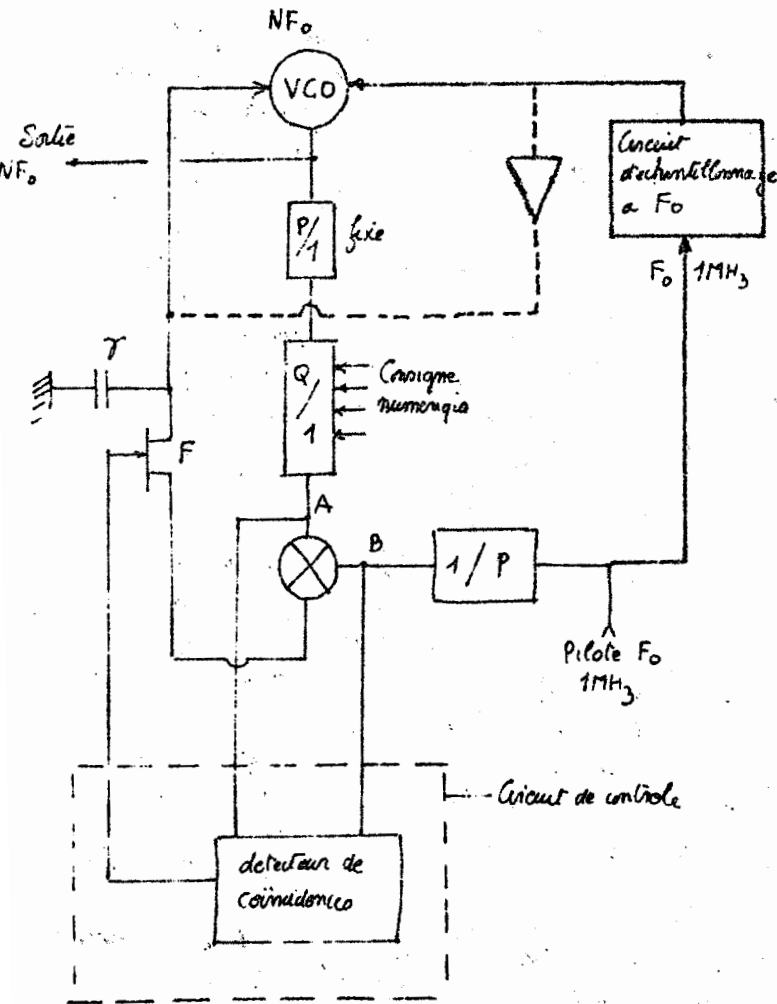 NF₀
VCO
Sortie
NF₀
Circuit
d'echantillonnage
a F₀
P/1
fixe
F₀ 1MHz
γ
Q/1
Consigne
numerique
F
A
B
1/P
Pilote F₀
1MHz
Circuit de contrôle
detecteur de
coïncidences